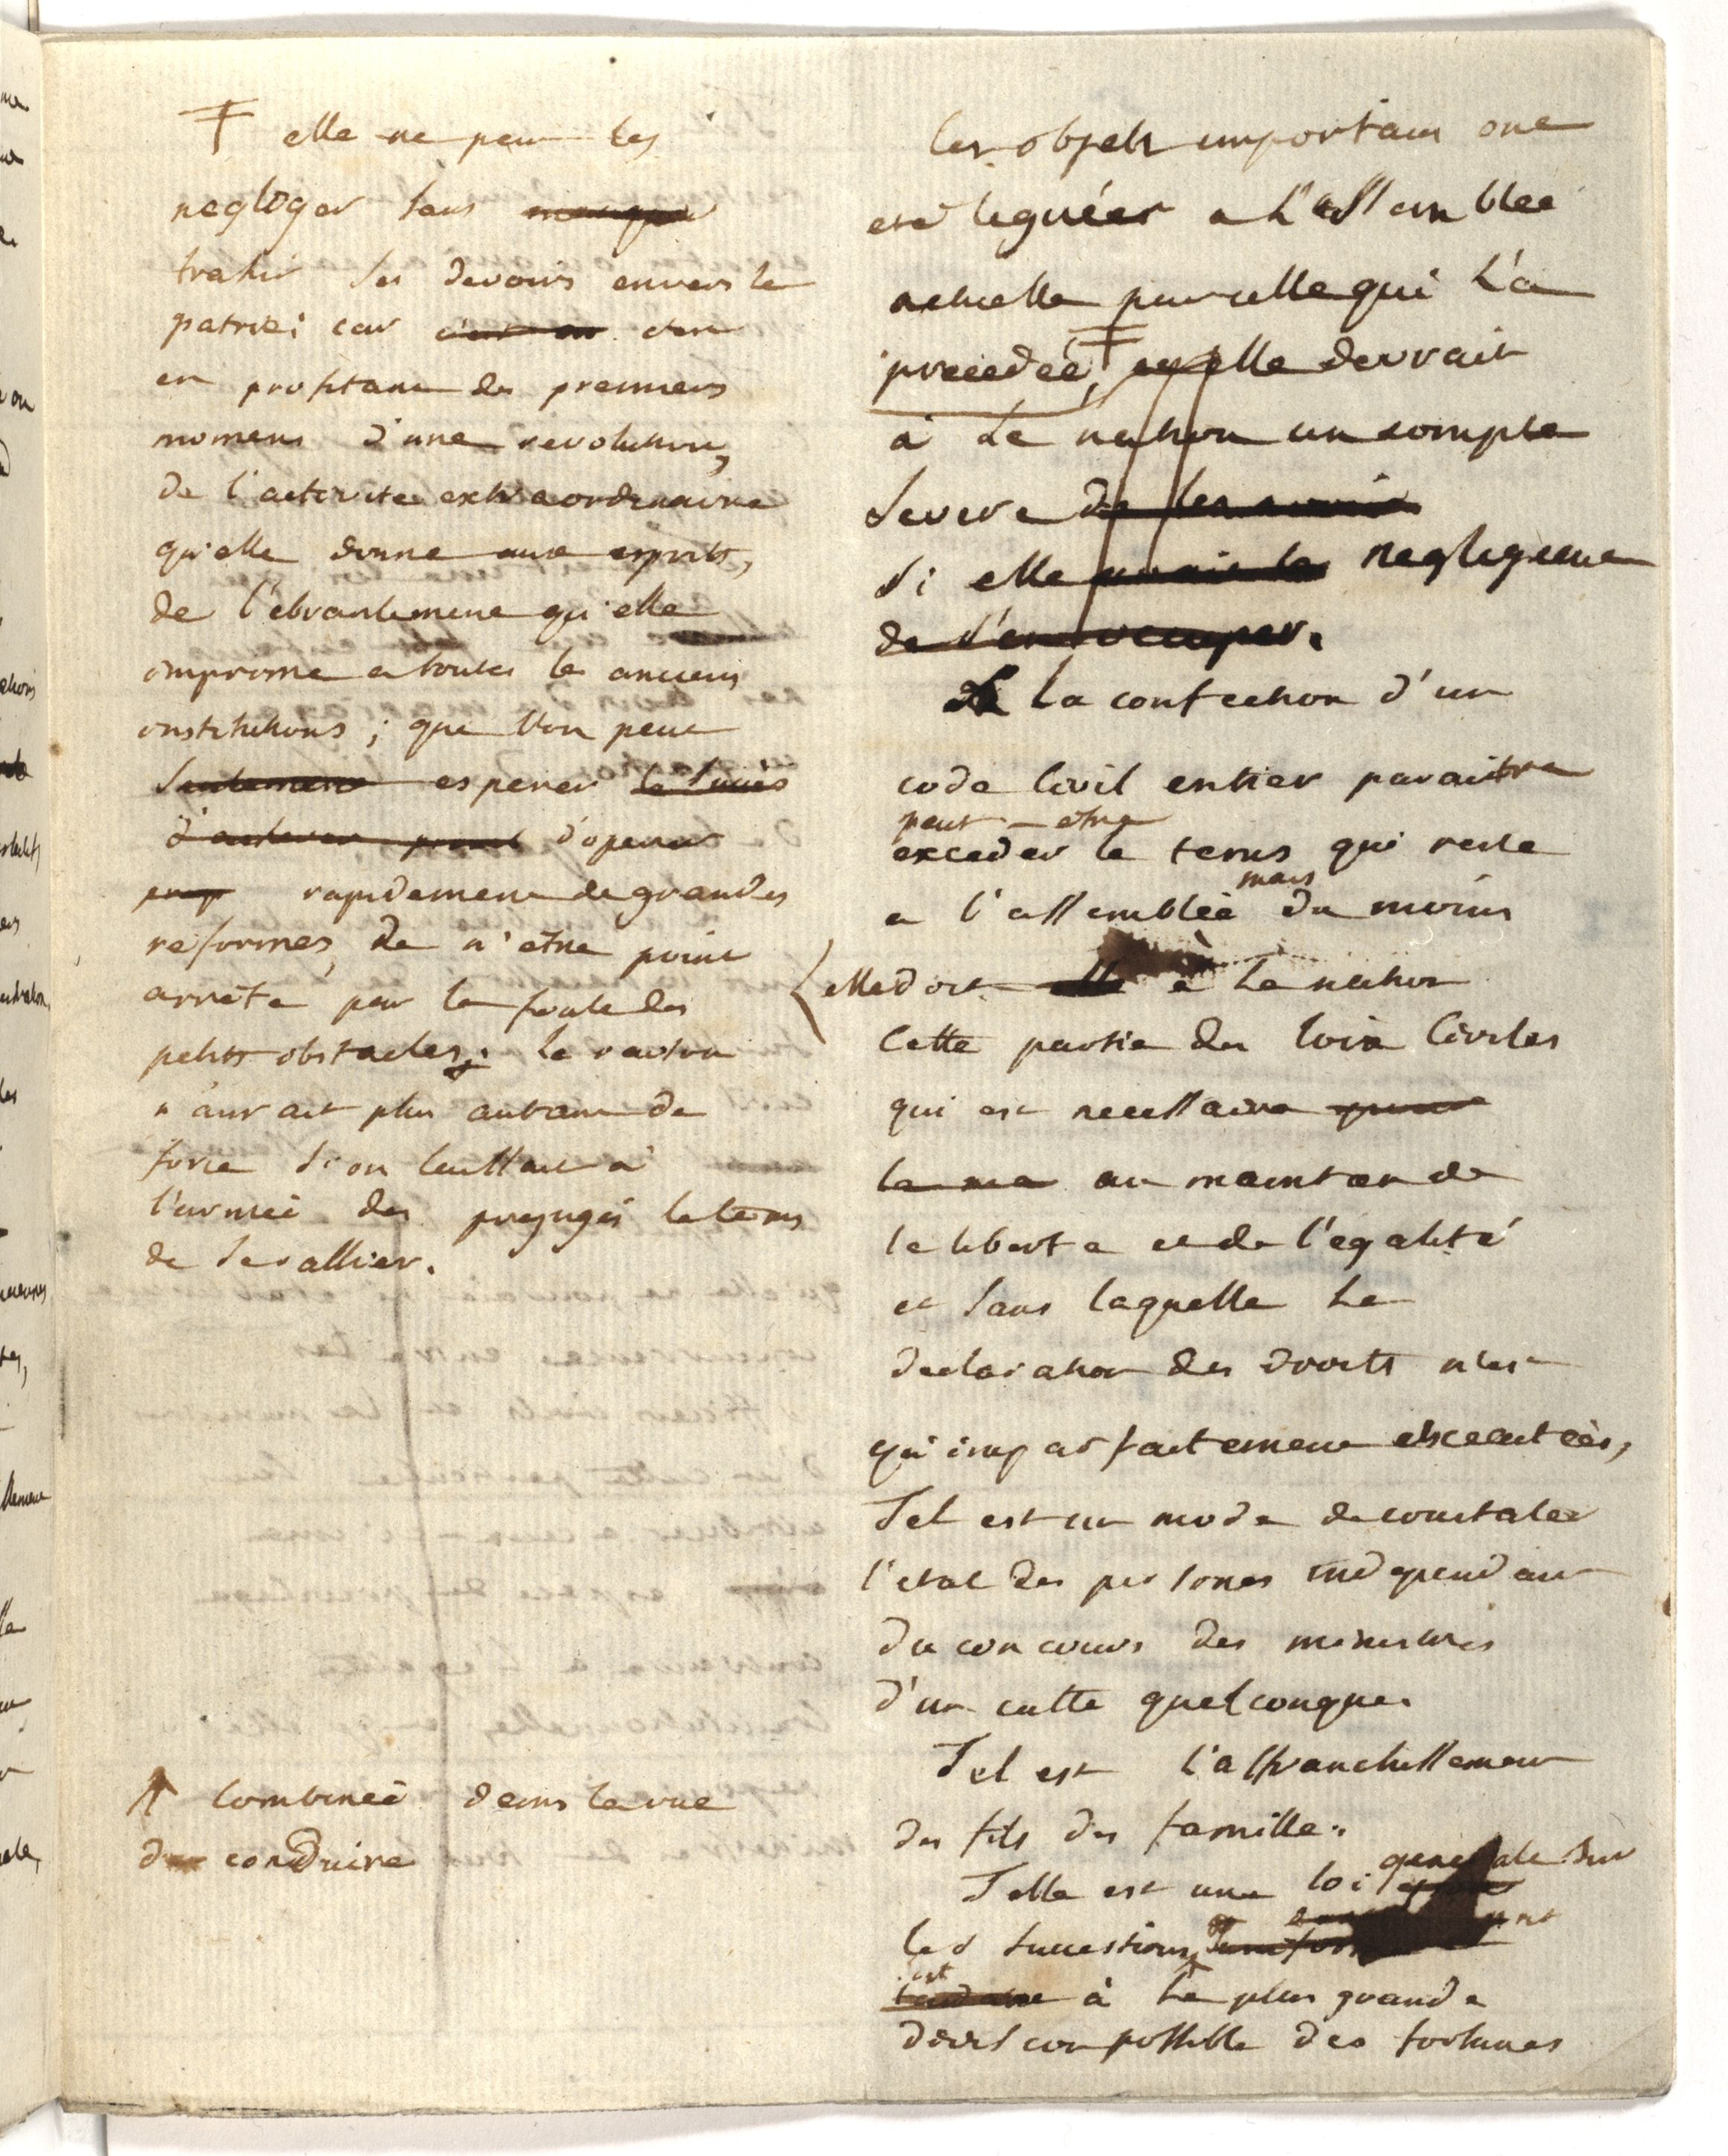 elle ne peut les
negliger sans
trahir ses devoirs envers la
patrie; car c'est
en profitant des premiers
momens d'une revolution,
de l'activité extraordinaire
qu'elle donne aux esprits,
de l'ebranlement qu'elle
imprime a toutes les anciens
institutions; que l'on peut
seulement esperer le succès
d'achever d'operer
rapidement de grandes
reformes, de n'etre point
arrêté par la foule des
petits obstacles; la raison
n'aurait plus autant de
force si on laissait à
l'armée des prejugés le tems
de se rallier.
combineé dans la vue
de conduire
Ces objets importans ont
eté legués a L'assemblée
actuelle par celle qui L'a
precedeé, elle devrait
à La nation un compte
severe de
si elle negligence
de s'en occuper.
La confection d'un
code Civil entier paraitra
peut-etre
exceder le tems qui reste
mais
a l'assembleè du moins
elle doit à La nation
Cette partie des loix Civiles
qui est necessaire
au maintien de
la liberté et de l'égalité
et sans laquelle La
declaration des droits n'est
qu'imparfaitement executeés,
Tel est un mode de constater
l'etat des persones independant
du concours des ministres
d'un culte quelconque.
Tel est l'affranchissement
des fils de famille.
generale sur
Telle est une loi
les successions
à La plus grande
division possible des fortunes